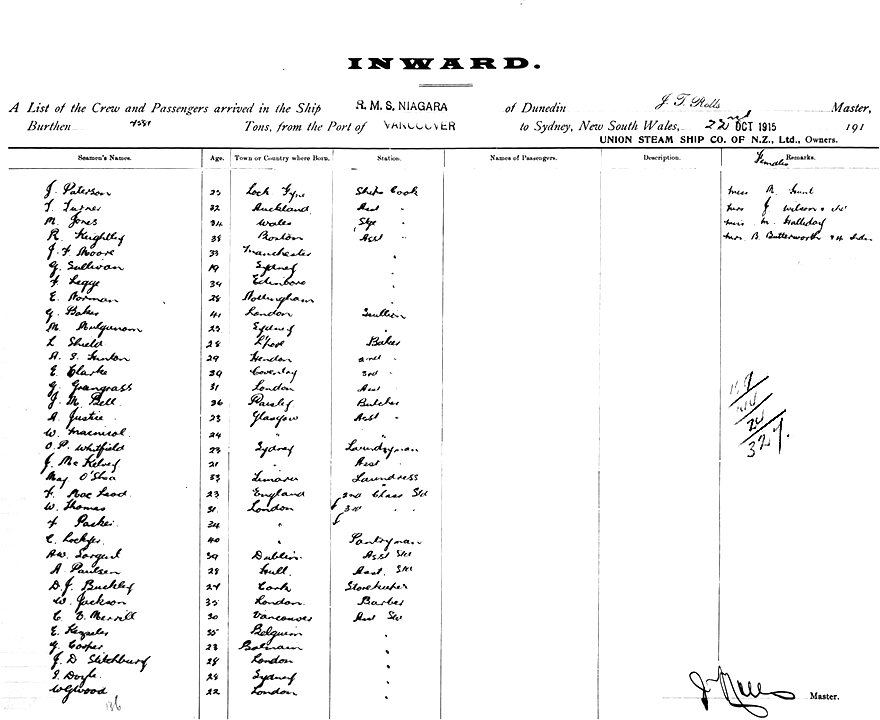 INWARD.
A List of the Crew and Passengers arrived in the Ship R. M. S. NIAGARA of Dunedin J. T. Rolls Master,
Burthen Tons, from the Port of VANCOUVER to Sydney, New South Wales, 22nd OCT 1915 191
UNION STEAM SHIP CO. OF N.Z., Ltd., Owners.
Seamen's Names. Age. Town or Country where Born. Station. Names of Passengers. Description. Females Remarks.
J. Paterson 23 Loch Fyne Ships Cook Miss Hunt
T. Turner 32 Auckland Asst " Mrs J Wilson
M. Jones 34 Wales Miss M. Halliday
R. Keightley 38 Boston Asst " Mrs B Butterworth
J. F Moore 33 Manchester "
G. Sullivan 19 Sydney "
F. Legge 34 "
E. Norman 28 Nottingham "
G. Baker 41 London Scullion
M. 23 Sydney "
L Shield 28 L'pool Baker
A. S. 29 Hendon 2nd "
E. Clarke 39 Coventry 3rd "
G. Grangrass 31 London Asst "
J. M Bell 36 Paisley Butcher
A. Justice 23 Glasgow Asst "
W. 24 " "
O. P. Whitfield 23 Sydney Laundryman
J. McKelvey 21 " Asst "
May O'Shea 33 Timaru Laundress
F. MacLeod 23 England 2nd Class Std
W. Thomas 31 London 3rd " "
F Parker 34 "
C. 40 " Pantryman
AW. Sargent 39 Dublin Asst Std
A Paulsen 28 Hull Asst. Std
D. J. Buckley 24 Cork Storekeeper
W. Jackson 35 London. Barber
C. E. Merrill 30 Vancouver Asst Std
E. 35 Belguim "
G. Cooper 23 Balmain "
J. D Stitchbury 28 London "
J. Doyle 28 Sydney "
WG Wood 22 London "
24
327.
J Rolls Master.